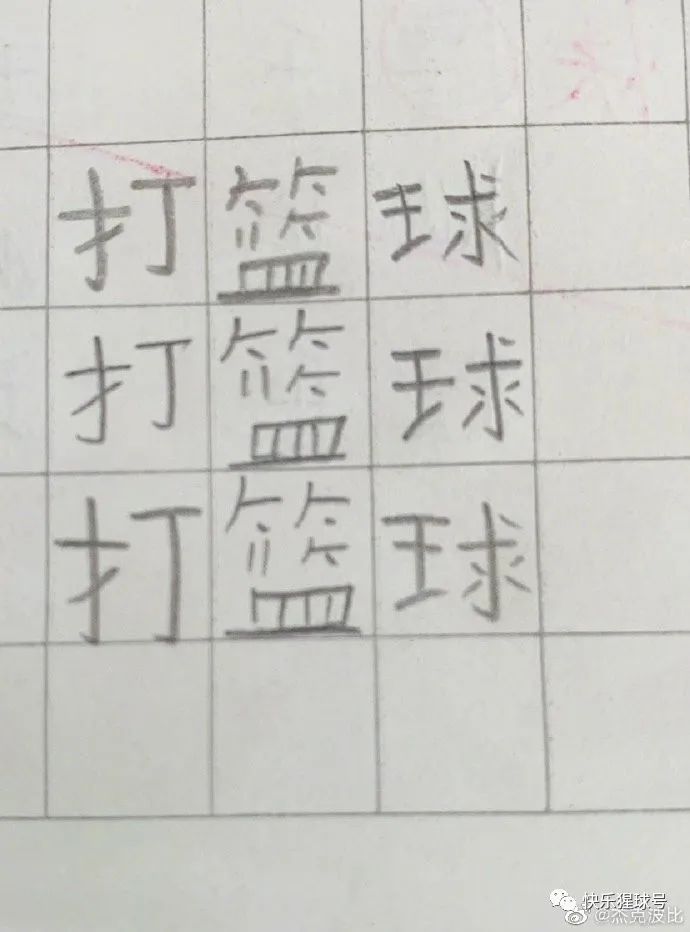 打篮球
打篮球
打篮球
快乐猩球号
@杰克波比